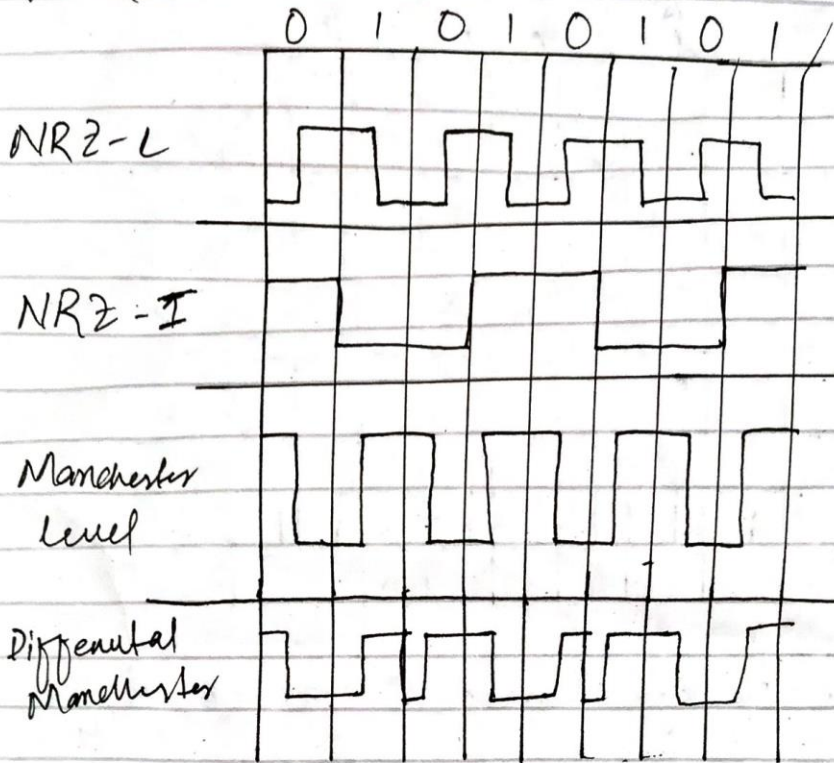 0 1 0 1 0 1 0 1
NRZ-L
NRZ-I
Manchester
level
Diffenutal
Manchester